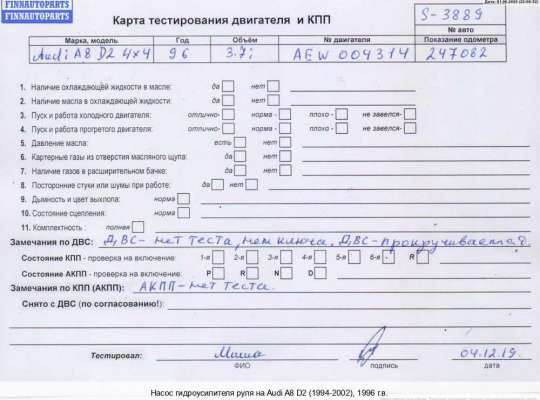 FINNAUTOPARTS
FINNAUTOPARTS
Карта тестирования двигателя и КПП
S-3889
№ авто
Марка, модель Год Объём № двигателя Показание одометра
Audi A8 D2 4x4 96 3.7i AEW 004314 247082
1. Наличие охлаждающей жидкости в масле: да нет
2. Наличие масла в охлаждающей жидкости: да нет
3. Пуск и работа холодного двигателя: отлично- норма - плохо - не завелся-
4. Пуск и работа прогретого двигателя: отлично- норма - плохо - не завелся-
5. Давление масла: есть нет
6. Картерные газы из отверстия масляного щупа: да нет
7. Наличие газов в расширительном бачке: да нет
8. Посторонние стуки или шумы при работе: да нет
9. Дымность и цвет выхлопа: норма
10. Состояние сцепления: норма
11. Комплектность : полная
Замечания по ДВС: ДВС - нет теста, нет ключа, ДВС - прокручивается.
Состояние КПП - проверка на включение: 1-я 2-я 3-я 4-я 5-я 6-я - R
Состояние АКПП - проверка на включение: P R N D
Замечания по КПП (АКПП): АКПП - нет теста.
Снято с ДВС (по согласованию!):
Тестировал: Маша 04.12.19.
ФИО подпись дата
Насос гидроусилителя руля на Audi A8 D2 (1994-2002), 1996 г.в.